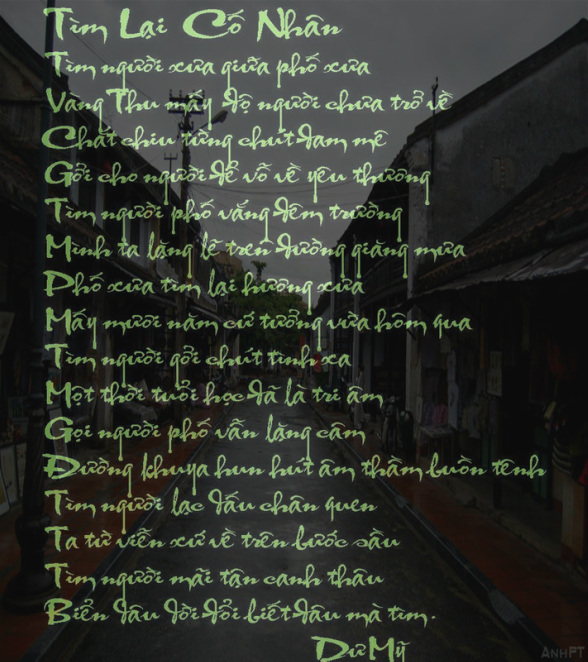 Tìm Lại Cố Nhân
Tìm người xưa giữa phố xưa
Vàng Thu mấy độ người chưa trở về
Chắt chiu từng chút đam mê
Gởi cho người để vỗ về yêu thương
Tìm người phố vắng đêm trường
Mình ta lặng lẽ trên đường giăng mưa
Phố xưa tìm lại hương xưa
Mấy mươi năm cứ tưởng vừa hôm qua
Tìm người gởi chút tình xa
Một thời tuổi học đã là tri âm
Gọi người phố vẫn lặng câm
Đường khuya hun hút âm thầm buồn tênh
Tìm người lạc dấu chân quen
Ta từ viễn xứ về trên bước sầu
Tìm người mãi tận canh thâu
Biển dâu dời đổi biết đâu mà tìm.
Dư Mỹ
AnhPT